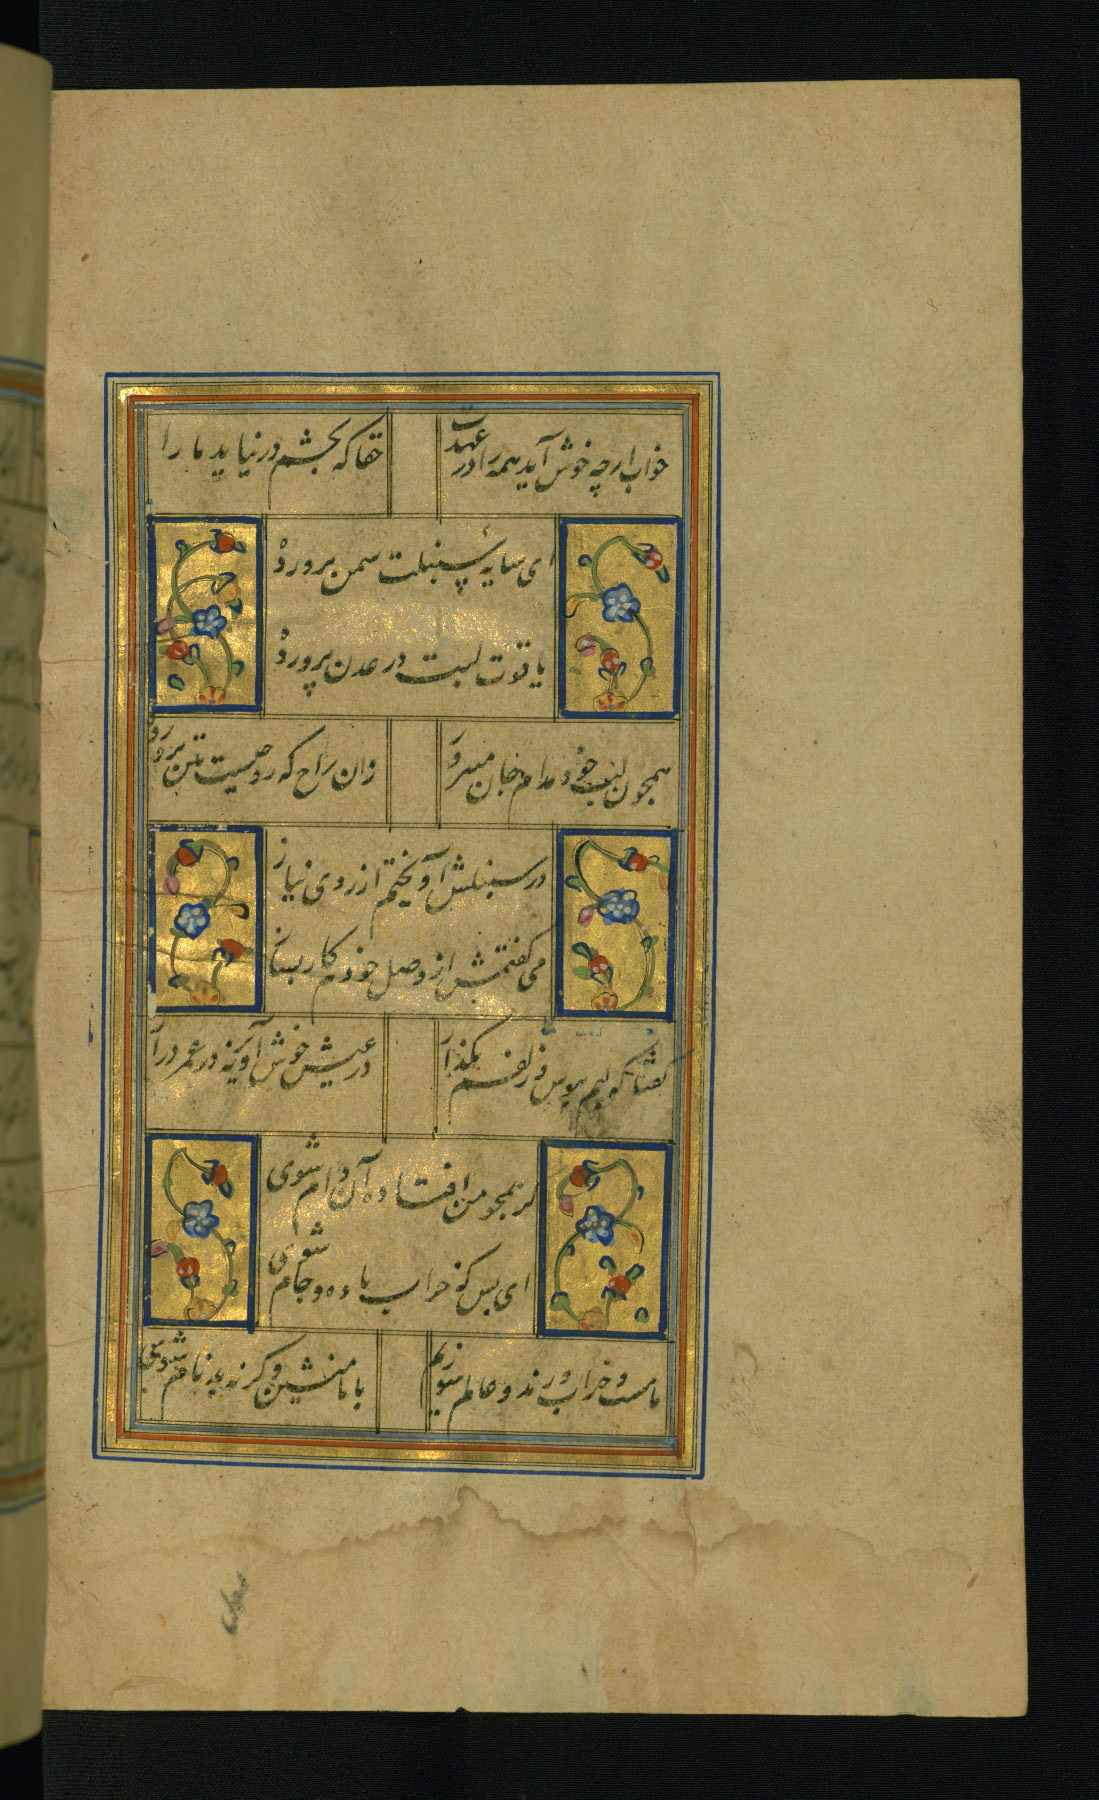 خواب ارچه خوش آید همه را در عهدت
حقا که بچشم در نیاید ما را
ای سایه سنبلت سمن پرورده
یاقوت لبت در عدن پرورده
همچون لب خود مدام جان می‌پرور
زان راح که روحیست بتن پرورده
در سنبلش آویختم از روی نیاز
می گفتمش از وصل خودم کار بساز
گفتا که لبم ببوس و زلفم بگذار
در عیش خوش آویز نه در عمر دراز
گر همچو من افتاده آن دام شوی
ای بس که خراب باده و جام شوی
ما مست و خراب و رند و عالم سوزیم
با ما منشین و گر نه بدنام شوی